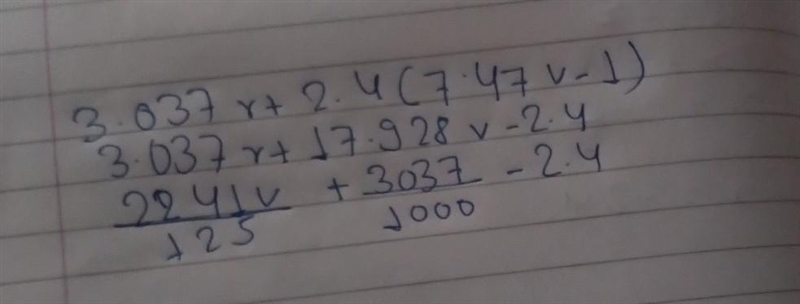 3.037 r+ 2.4 (7.47 v-1)
3.037 r+ 17.928 v-2.4
2241v/125 + 3037/1000 - 2.4